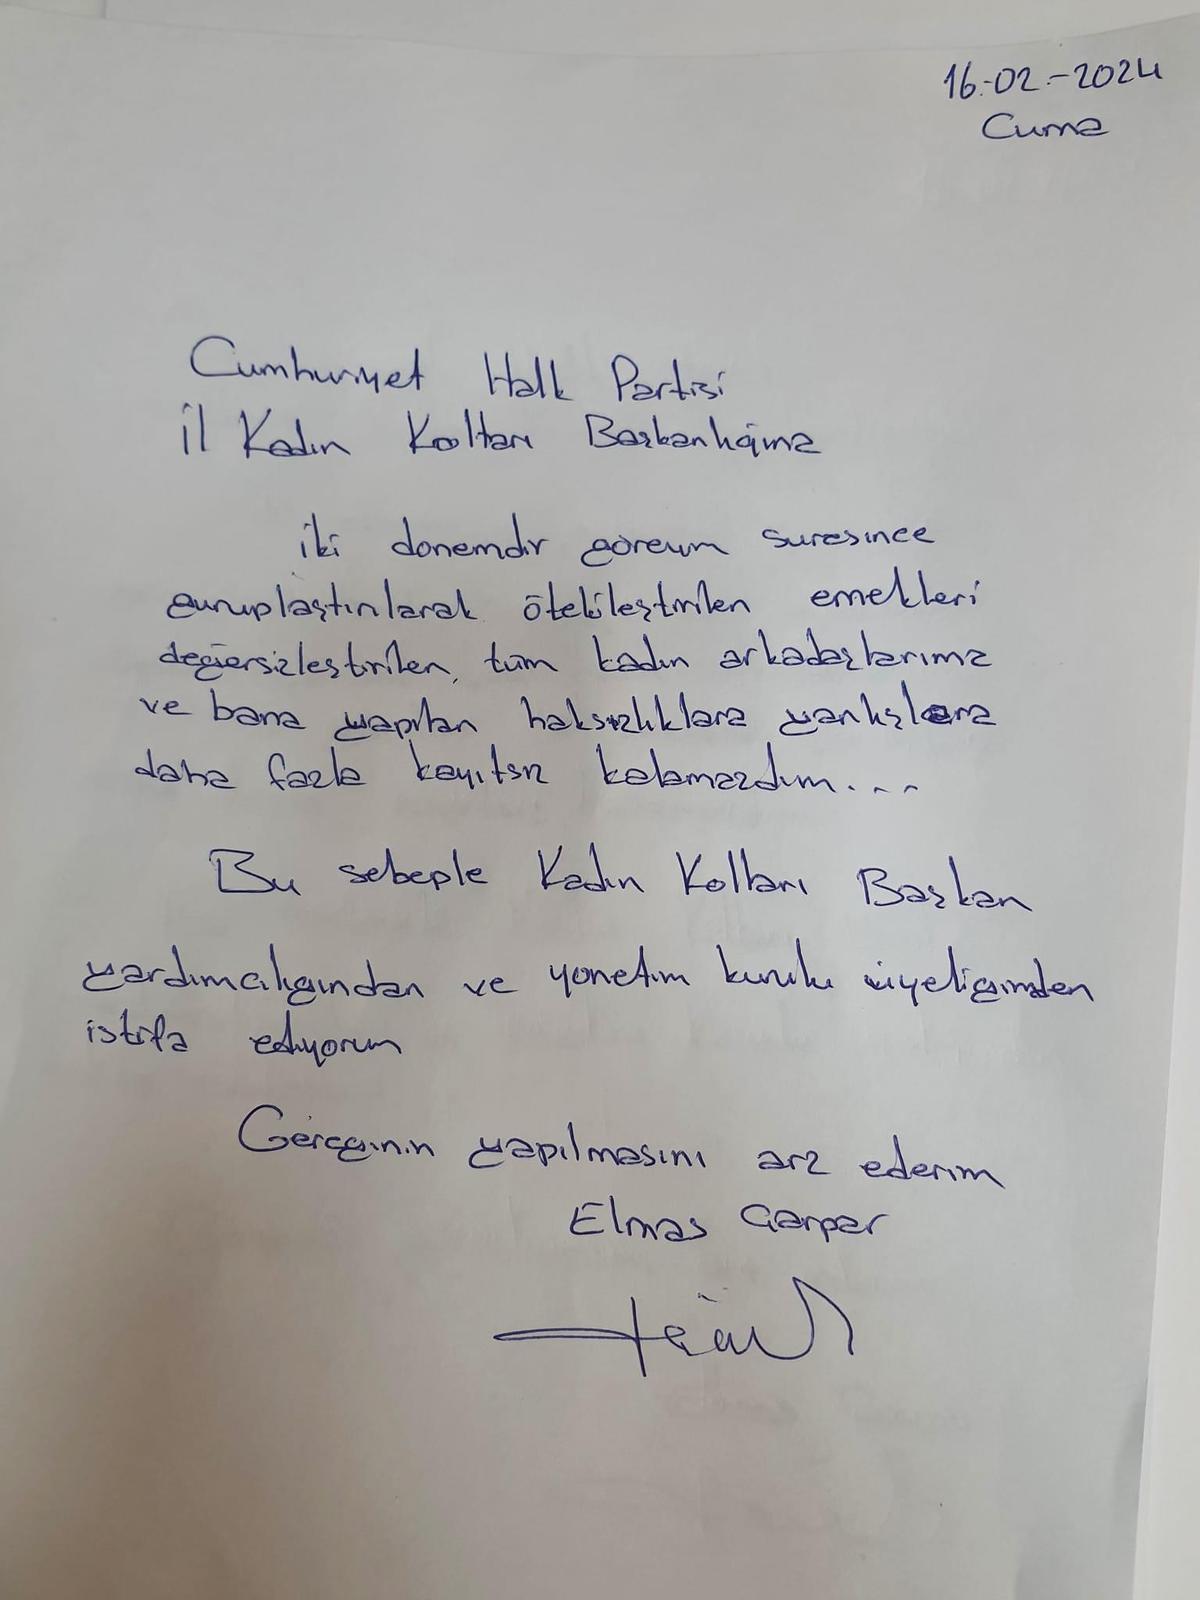 16-02-2024
Cuma
Cumhuriyet Halk Partisi
İl Kadın Kolları Başkanlığına
iki donemdir görevim suresince
guruplaştırılarak ötekileştirilen emekleri
değersizleştirilen, tüm kadın arkadaşlarıma
ve bana yapılan haksızlıklara yanlışlara
daha fazla kayıtsız kalamazdım...
Bu sebeple Kadın Kolları Başkan
yardımcılığından ve yonetim kurulu üyeliğimden
istifa ediyorum
Gereğinin yapılmasını arz ederim
Elmas Garpar